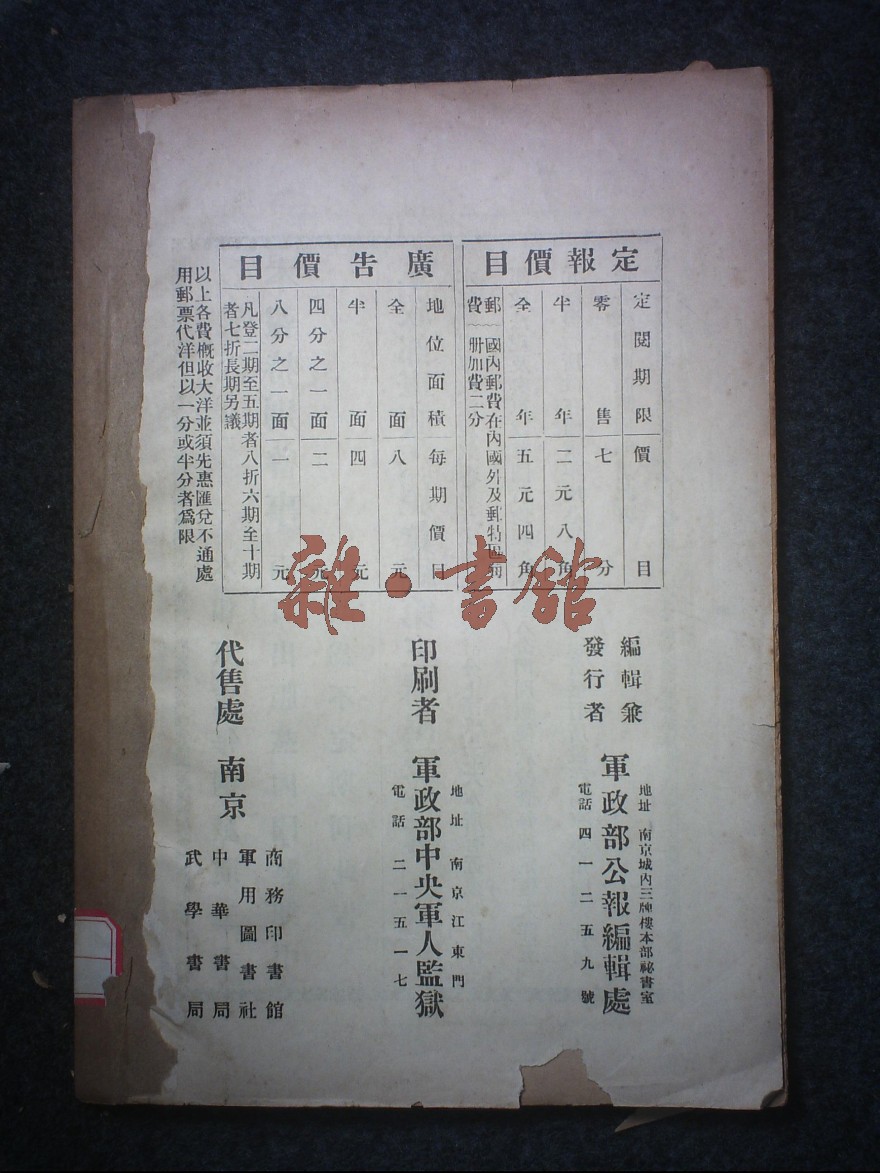 定報價目
定閱期限價目
零售七分
半年二元八角
全年五元四角
郵費
國內郵費在內國外及郵特區
冊加費二分
廣告價目
地位面積每期價目
全面八元
半面四元
四分之一面二元
八分之一面一元
凡登二期至五期者八折六期至十期
者七折長期另議
以上各費概收大洋並須先惠匯兌不通處
用郵票代洋但以一分或半分者爲限
雜·書館
編輯兼
發行者
軍政部公報編輯處
地址 南京城內三牌樓本部祕書室
電話 四一二五九號
印刷者
軍政部中央軍人監獄
地址 南京江東門
電話 二一五一七
代售處 南京
商務印書館
軍用圖書社
中華書局
武學書局